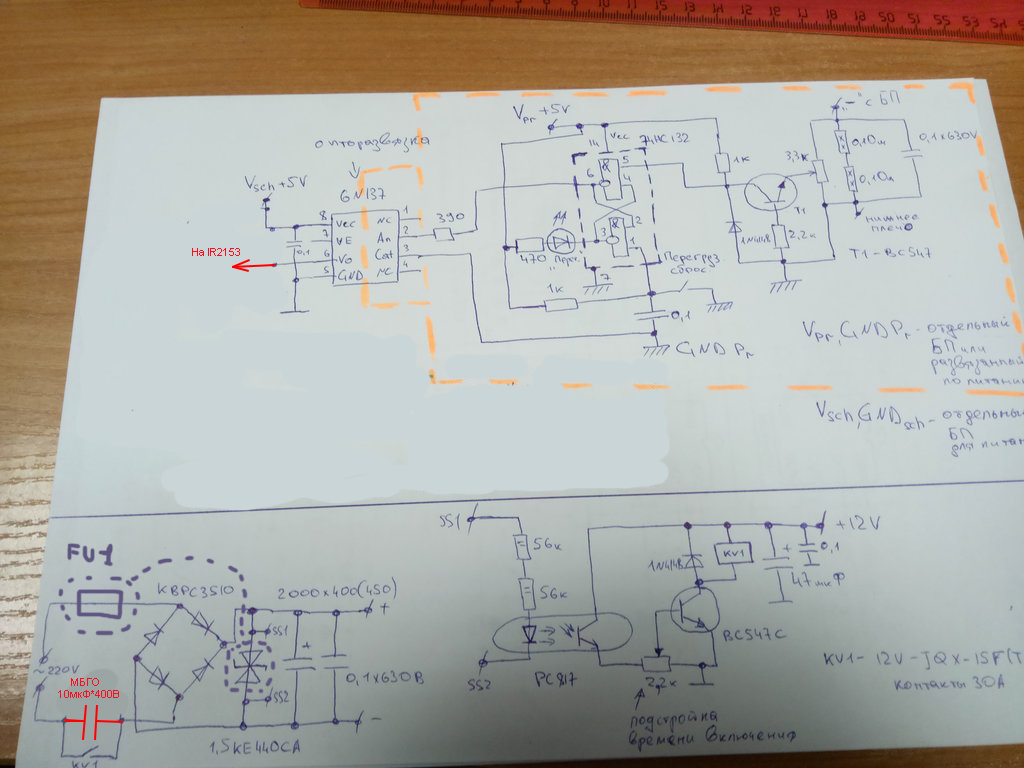 оптопразвязка
Vsch +5V
6N137
8
Vcc
NC
1
7
VE
An
2
390
6
Vo
Cat
3
5
GND
NC
4
0,1
На IR2153
Vpr +5V
14
Vcc
74HC132
&
5
6
4
&
2
3
1
7
470
"Перег."
1к
Перегруз
сброс
0,1
GND Pr
1к
1N4148
T1
2,2к
3,3к
"-" с БП
0,1 Ом
0,1 Ом
0,1х630V
нижнее
плечо
T1-BC547
Vpr, GND Pr - отдельный
БП или
развязанный
по питани
Vsch, GND sch - отдельный
БП
для питан
FU1
KBPC3510
2000х400(450)
+
SS1
SS2
~220V
МБГО
10мкФ*400В
KV1
+
0,1х630В
-
1,5KE440CA
SS1
56к
56к
SS2
PC817
1N4148
KV1
+
47мкФ
0,1
+12V
BC547C
2,2к
подстройка
времени включения
KV1- 12V-JQX-15F(T
контакты 30А